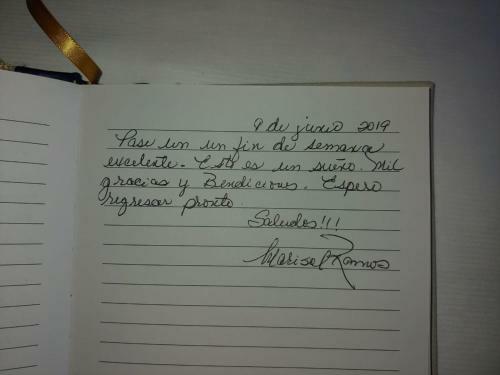 9 de junio 2019
Pase un un fin de semana
excelente. Esto es un sueño. Mil
gracias y Bendiciones. Espero
regresar pronto.
Saludos!!!
Marisol Ramos